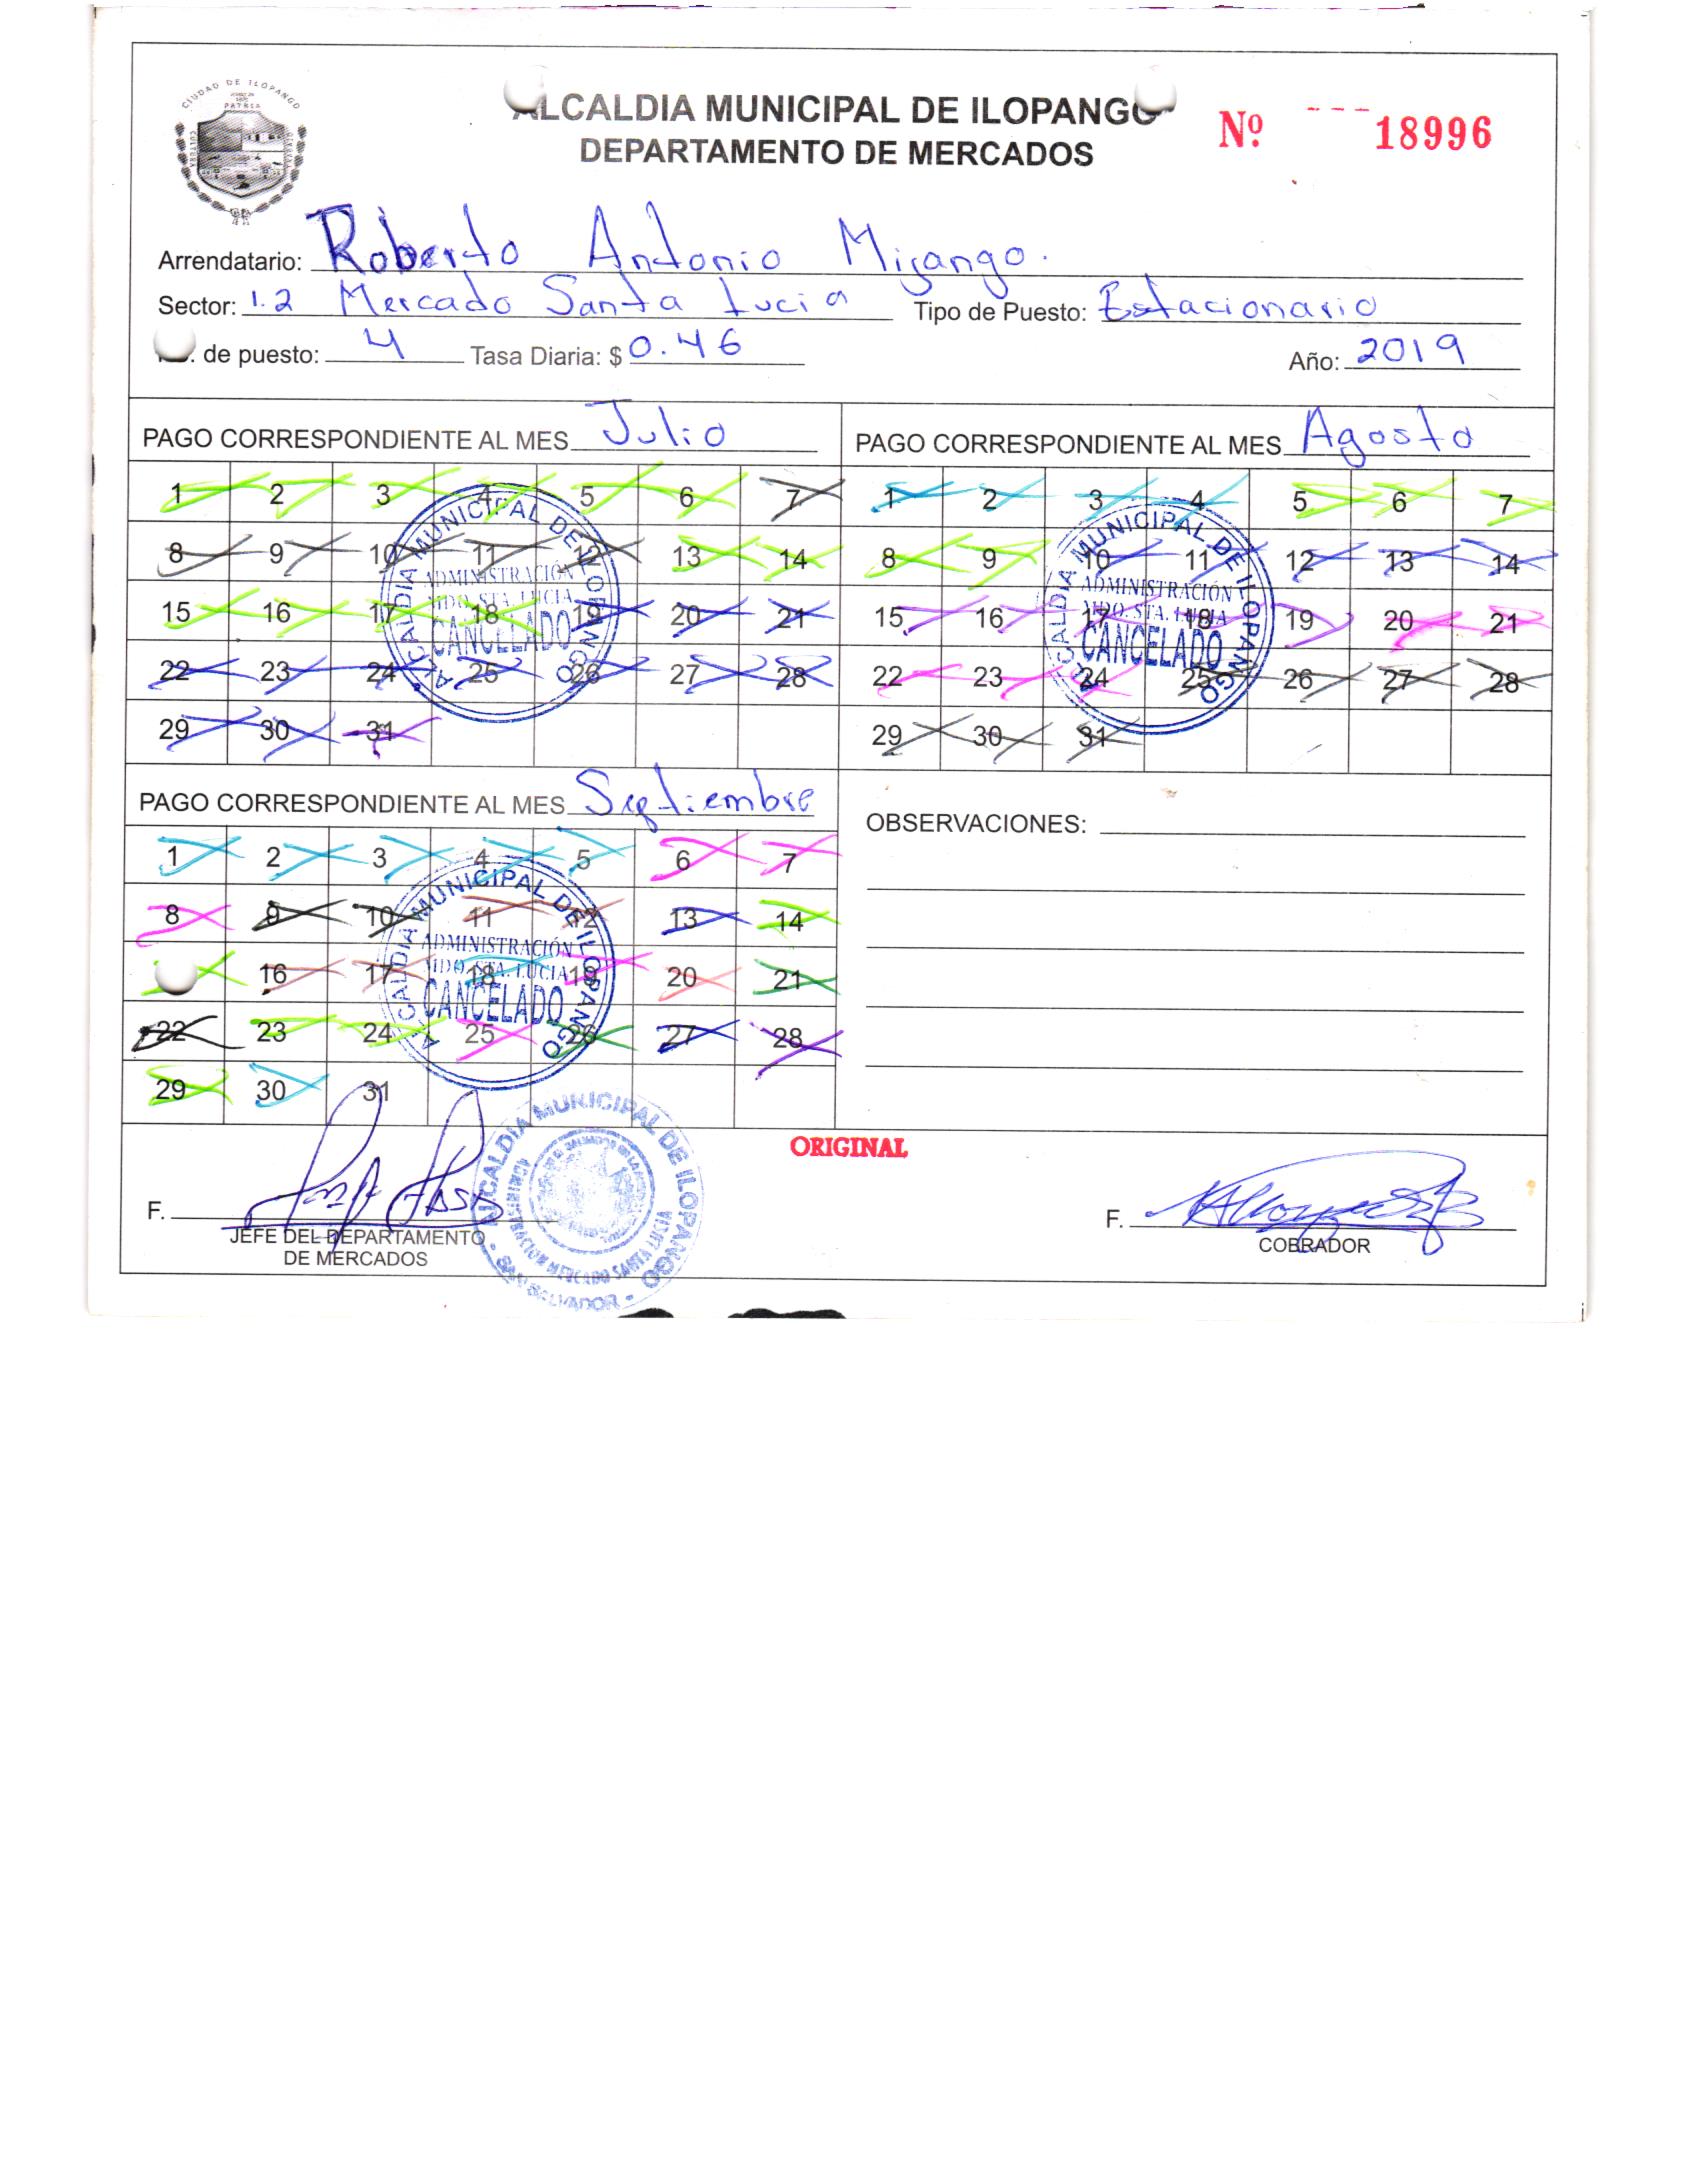 CIUDAD DE ILOPANGO
PATRIA
ALCALDIA MUNICIPAL DE ILOPANGO
DEPARTAMENTO DE MERCADOS
Nº 18996
Arrendatario: Roberto Antonio Mijango.
Sector: 1.2 Mercado Santa Lucia Tipo de Puesto: Estacionario
. de puesto: 4 Tasa Diaria: $ 0.46 Año: 2019
PAGO CORRESPONDIENTE AL MES Julio
1 2 3 4 5 6 7
8 9 10 11 12 13 14
15 16 17 18 19 20 21
22 23 24 25 26 27 28
29 30 31
ALCALDIA MUNICIPAL DE ILOPANGO
ADMINISTRACIÓN
MDO. STA. LUCIA
CANCELADO
PAGO CORRESPONDIENTE AL MES Agosto
1 2 3 4 5 6 7
8 9 10 11 12 13 14
15 16 17 18 19 20 21
22 23 24 25 26 27 28
29 30 31
ALCALDIA MUNICIPAL DE ILOPANGO
ADMINISTRACIÓN
MDO. STA. LUCIA
CANCELADO
PAGO CORRESPONDIENTE AL MES Septiembre
1 2 3 4 5 6 7
8 9 10 11 12 13 14
16 17 18 19 20 21
22 23 24 25 26 27 28
29 30 31
ALCALDIA MUNICIPAL DE ILOPANGO
ADMINISTRACIÓN
MDO. STA. LUCIA
CANCELADO
OBSERVACIONES:
ORIGINAL
F.
JEFE DEL DEPARTAMENTO
DE MERCADOS
ALCALDIA MUNICIPAL DE ILOPANGO
ADMINISTRACION MERCADO SANTA LUCIA
SAN SALVADOR
F.
COBRADOR